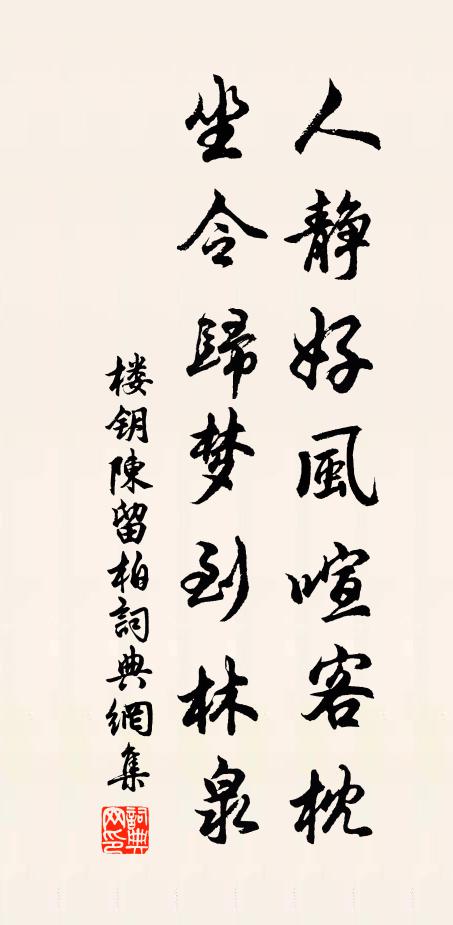 人静好風喧客枕
坐令歸梦到林泉
楼钥陳留柏詞典網集
詞典
网印